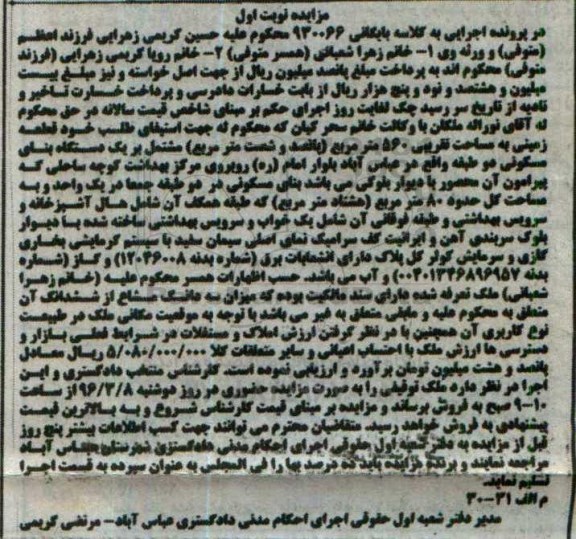 مزایده نوبت اول
در پرونده اجرایی به کلاسه بایگانی ۹۳۰۰۶۶ محکوم علیه حسین کریمی زهرایی فرزند اعظم
(متوفی) و ورثه وی ۱- خانم زهرا شعبانی (همسر متوفی) ۲- خانم رویا کریمی زهرایی (فرزند
متوفی) محکوم اند به پرداخت مبلغ پانصد میلیون ریال از جهت اصل خواسته و نیز مبلغ بیست
میلیون و هشتصد و نود و پنج هزار ریال از بابت خسارات دادرسی و پرداخت خسارت تاخیر و
تادیه از تاریخ سر رسید چک لغایت روز اجرای حکم بر مبنای شاخص قیمت سالانه در حق محکوم
له آقای نوراله ملکان با وکالت خانم سحر کیان که محکوم له جهت استیفای طلب خود قطعه
زمینی به مساحت تقریبی ۵۶۰ متر مربع (پانصد و شصت متر مربع) مشتمل بر یک دستگاه بنای
مسکونی دو طبقه واقع در عباس آباد بلوار امام (ره) روبروی مرکز بهداشت کوچه ساحلی که
پیرامون آن محصور با دیوار بلوکی می باشد بنای مسکونی در دو طبقه جمعا در یک واحد و به
مساحت کل حدود ۸۰ متر مربع (هشتاد متر مربع) که طبقه همکف آن شامل هال آشپزخانه و
سرویس بهداشتی و طبقه فوقانی آن شامل یک خواب و سرویس بهداشتی ساخته شده با دیوار
بلوک سربندی آهن و ایرانیت کف سرامیک نمای اصلی سیمان سفید با سیستم گرمایشی بخاری
گازی و سرمایش کولر گل پلاک دارای انشعابات برق (شماره بدنه ۱۲۰۴۶۰۰۸) و گاز (شماره
بدنه ۰۰۴۰۱۳۴۶۸۹۶۹۵۷) و آب می باشد. حسب اظهارات همسر محکوم علیه (خانم زهرا
شعبانی) ملک تعرفه شده دارای سند مالکیت بوده که میزان سه دانگ مشاع از ششدانگ آن
متعلق به محکوم علیه و مابقی متعلق به غیر می باشد با توجه به موقعیت مکانی ملک در طبیعت
نوع کاربری آن همچنین با در نظر گرفتن ارزش املاک و مستغلات در شرایط فعلی بازار و
دسترسی ها ارزش ملک با احتساب اعیانی و سایر متعلقات کلا ۵/۰۸۰/۰۰۰/۰۰۰ ریال معادل
پانصد و هشت میلیون تومان برآورد و ارزیابی نموده است. کارشناس منتخب دادگستری و این
اجرا در نظر دارد ملک توقیفی را به صورت مزایده حضوری در روز دوشنبه ۹۶/۳/۸ از ساعت
۱۰-۹ صبح به فروش برساند و مزایده بر مبنای قیمت کارشناس شروع و به بالاترین قیمت
پیشنهادی به فروش خواهد رسید. متقاضیان محترم می توانند جهت کسب اطلاعات بیشتر پنج روز
قبل از مزایده به دفتر شعبه اول حقوقی اجرای احکام مدنی دادگستری شهرستان عباس آباد
مراجعه نمایند و برنده مزایده باید ده درصد بها را فی المجلس به عنوان سپرده به قسمت اجرا
تسلیم نماید.
م الف ۳۱-۳۰
مدیر دفتر شعبه اول حقوقی اجرای احکام مدنی دادگستری عباس آباد- مرتضی کریمی